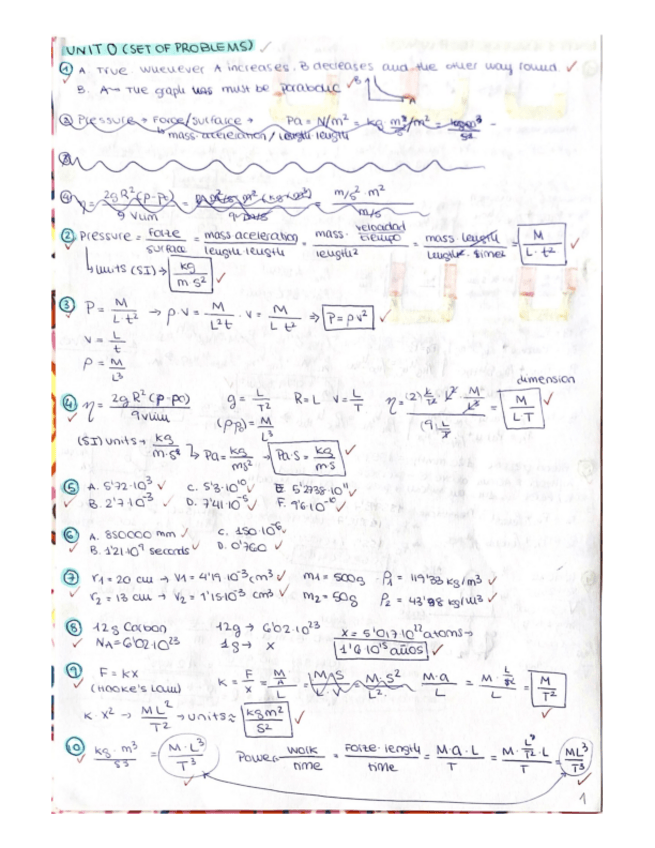 UNIT 0 (SET OF PROBLEMS) ✓
① A. True. Whenever A increases, B decreases and the other way round. ✓
B. A The graph has must be parabolic ✓ B A
② Pressure = Force/surface → Pa = N/m² = kg·m/s²/m² =
mass·aceleration / length·length
④ η = 2gR²(ρ-ρ₀) / 9 Vlim = = m/s²·m² / m/s
② Pressure = force/surface = mass·aceleration/length·length = mass·velocidad/tiempo / length² = mass·length / length²·time² = M / L·t² ✓
units (SI) → kg / m·s² ✓
③ P = M / L t² → ρ·v = M / L²t · v = M / L t² ⇒ P = ρv² ✓
v = L / t
ρ = M / L³
dimension
④ η = 2gR²(ρ-ρ₀) / 9 Vlim g = L / T² R = L V = L / T η = = M / L T ✓
(ρ,ρ₀) = M / L³
(SI) units → kg / m·s² Pa = kg / ms² → Pa·s = kg / m·s ✓
⑤ A. 5'72·10³ ✓ C. 5'3·10 ✓ E 5'2738·10¹¹ ✓
B. 2'7·10⁻³ ✓ D. 7'41·10⁻⁵ ✓ F. 9'6·10⁻¹⁰ ✓
⑥ A. 850000 mm ✓ C. 150·10⁻⁶ ✓
B. 1'21·10⁹ seconds ✓ D. 0'760 ✓
⑦ r₁ = 20 cm → V₁ = 4'19·10⁻³ cm³ ✓ m₁ = 500g ρ₁ = 119'33 kg/m³ ✓
r₂ = 13 cm → V₂ = 1'15·10⁻³ cm³ ✓ m₂ = 50g ρ₂ = 43'98 kg/m³ ✓
⑧ 12g Carbon 12g → 6'02·10²³ x = 5'017·10²² atoms →
NA = 6'02·10²³ 1g → x 1'6·10¹⁵ años ✓
⑨ F = kx K = F / x = M·A / L = = M·a / L = M·L/T² / L = M / T² ✓
(Hooke's law)
K·x² → ML² / T² → units = kg m² / s² ✓
⑩ kg·m³ / s³ = M·L³ / T³ Power = work / time = force·length / time = M·a·L / T = = ML³ / T³
1